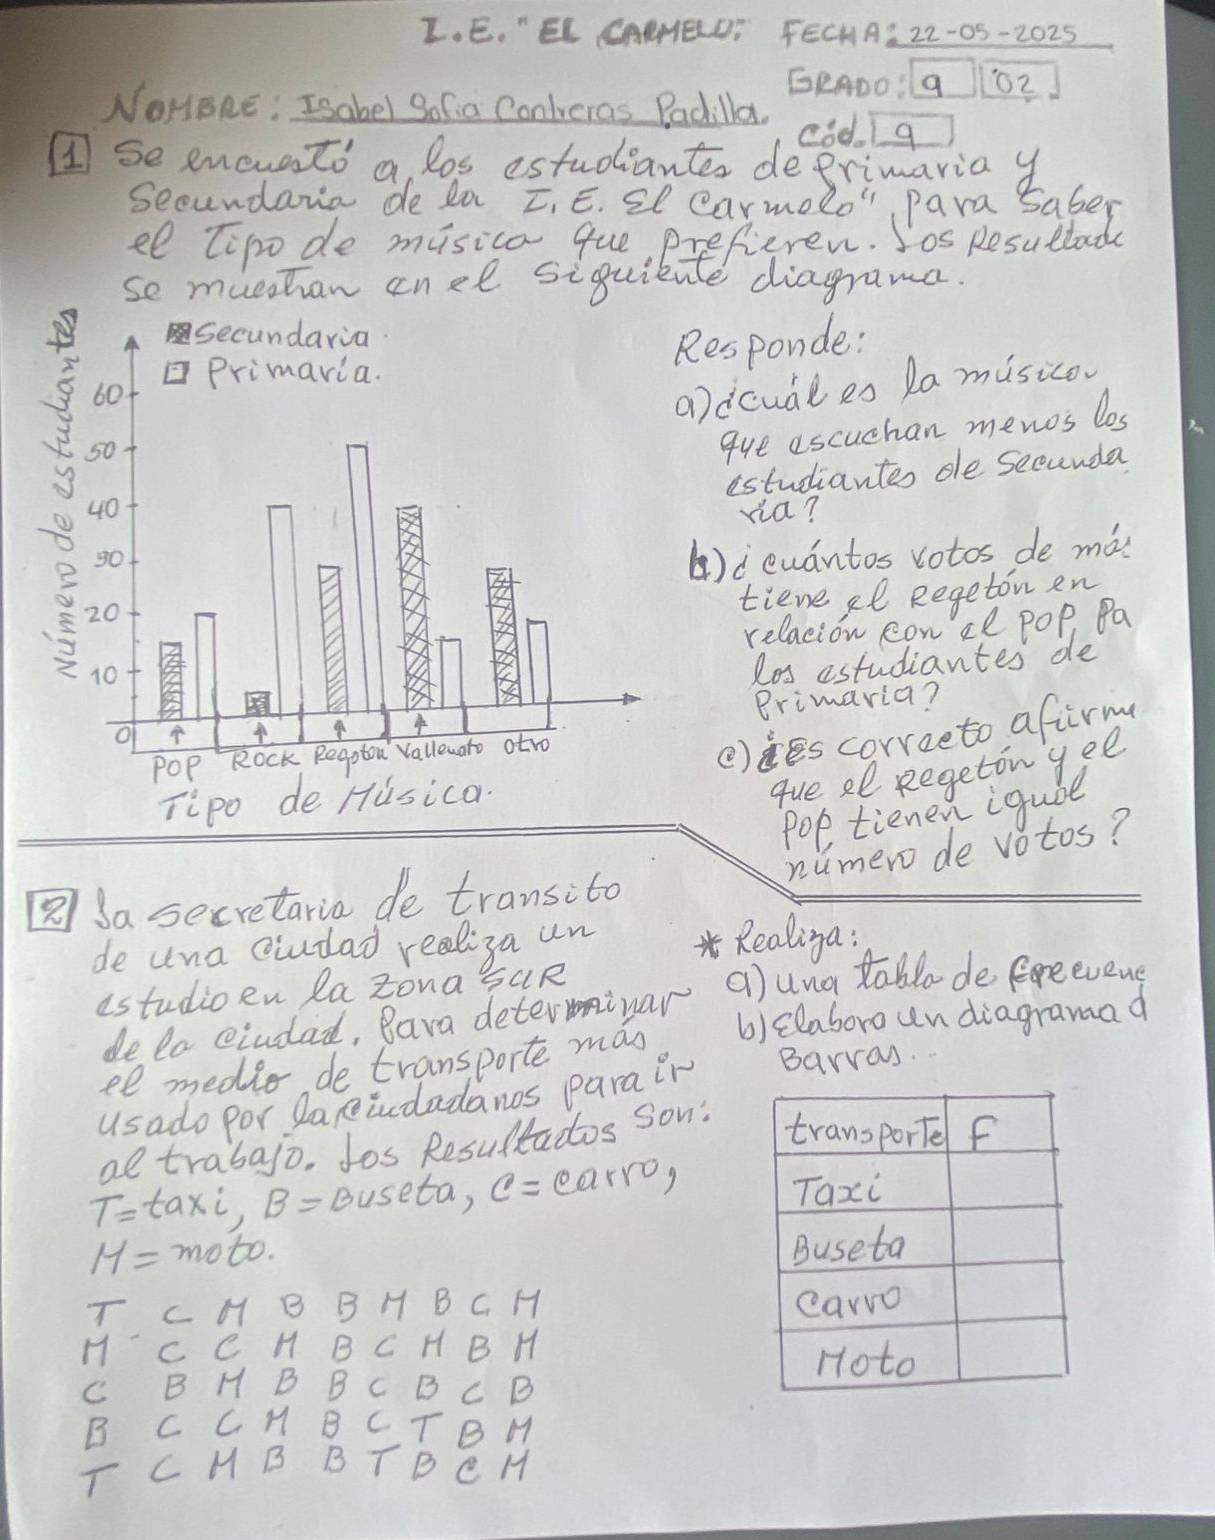 I.E. "EL CARMELO". FECHA: 22-05-2025
GRADO: 9 02
NOMBRE: Isabel Sofia Contreras Padilla.
Cód. 9
1 Se encuestó a los estudiantes de primaria y
Secundaria de la I.E. El Carmelo", para saber
el Tipo de música que prefieren. Los Resultado
se muestran en el siguiente diagrama.
Número de estudiantes
Secundaria
Primaria.
60
50
40
30
20
10
0
POP ROCK Regeton Vallenato otro
Tipo de Música.
Responde:
a) ¿cuál es la música
que escuchan menos los
estudiantes de Secunda
ria?
b) ¿cuántos votos de más
tiene el Regetón en
relación con el POP, Pa
los estudiantes de
Primaria?
c) ¿es correcto afirma
que el Regetón y el
POP tienen igual
número de votos?
2 La secretaria de transito
de una ciudad realiza un
estudio en la zona SUR
de la ciudad. Para determinar
el medio de transporte más
usado por la ciudadanos para ir
al trabajo. Los Resultados son:
T=taxi, B=Buseta, C=carro,
M=moto.
T C M B B M B C M
M C C M B C M B M
C B M B B C B C B
B C C M B C T B M
T C M B B T B C M
* Realiza:
a) una tabla de frecuenc
b) Elabora un diagrama d
Barras..
transporte F
Taxi
Buseta
Carro
Moto